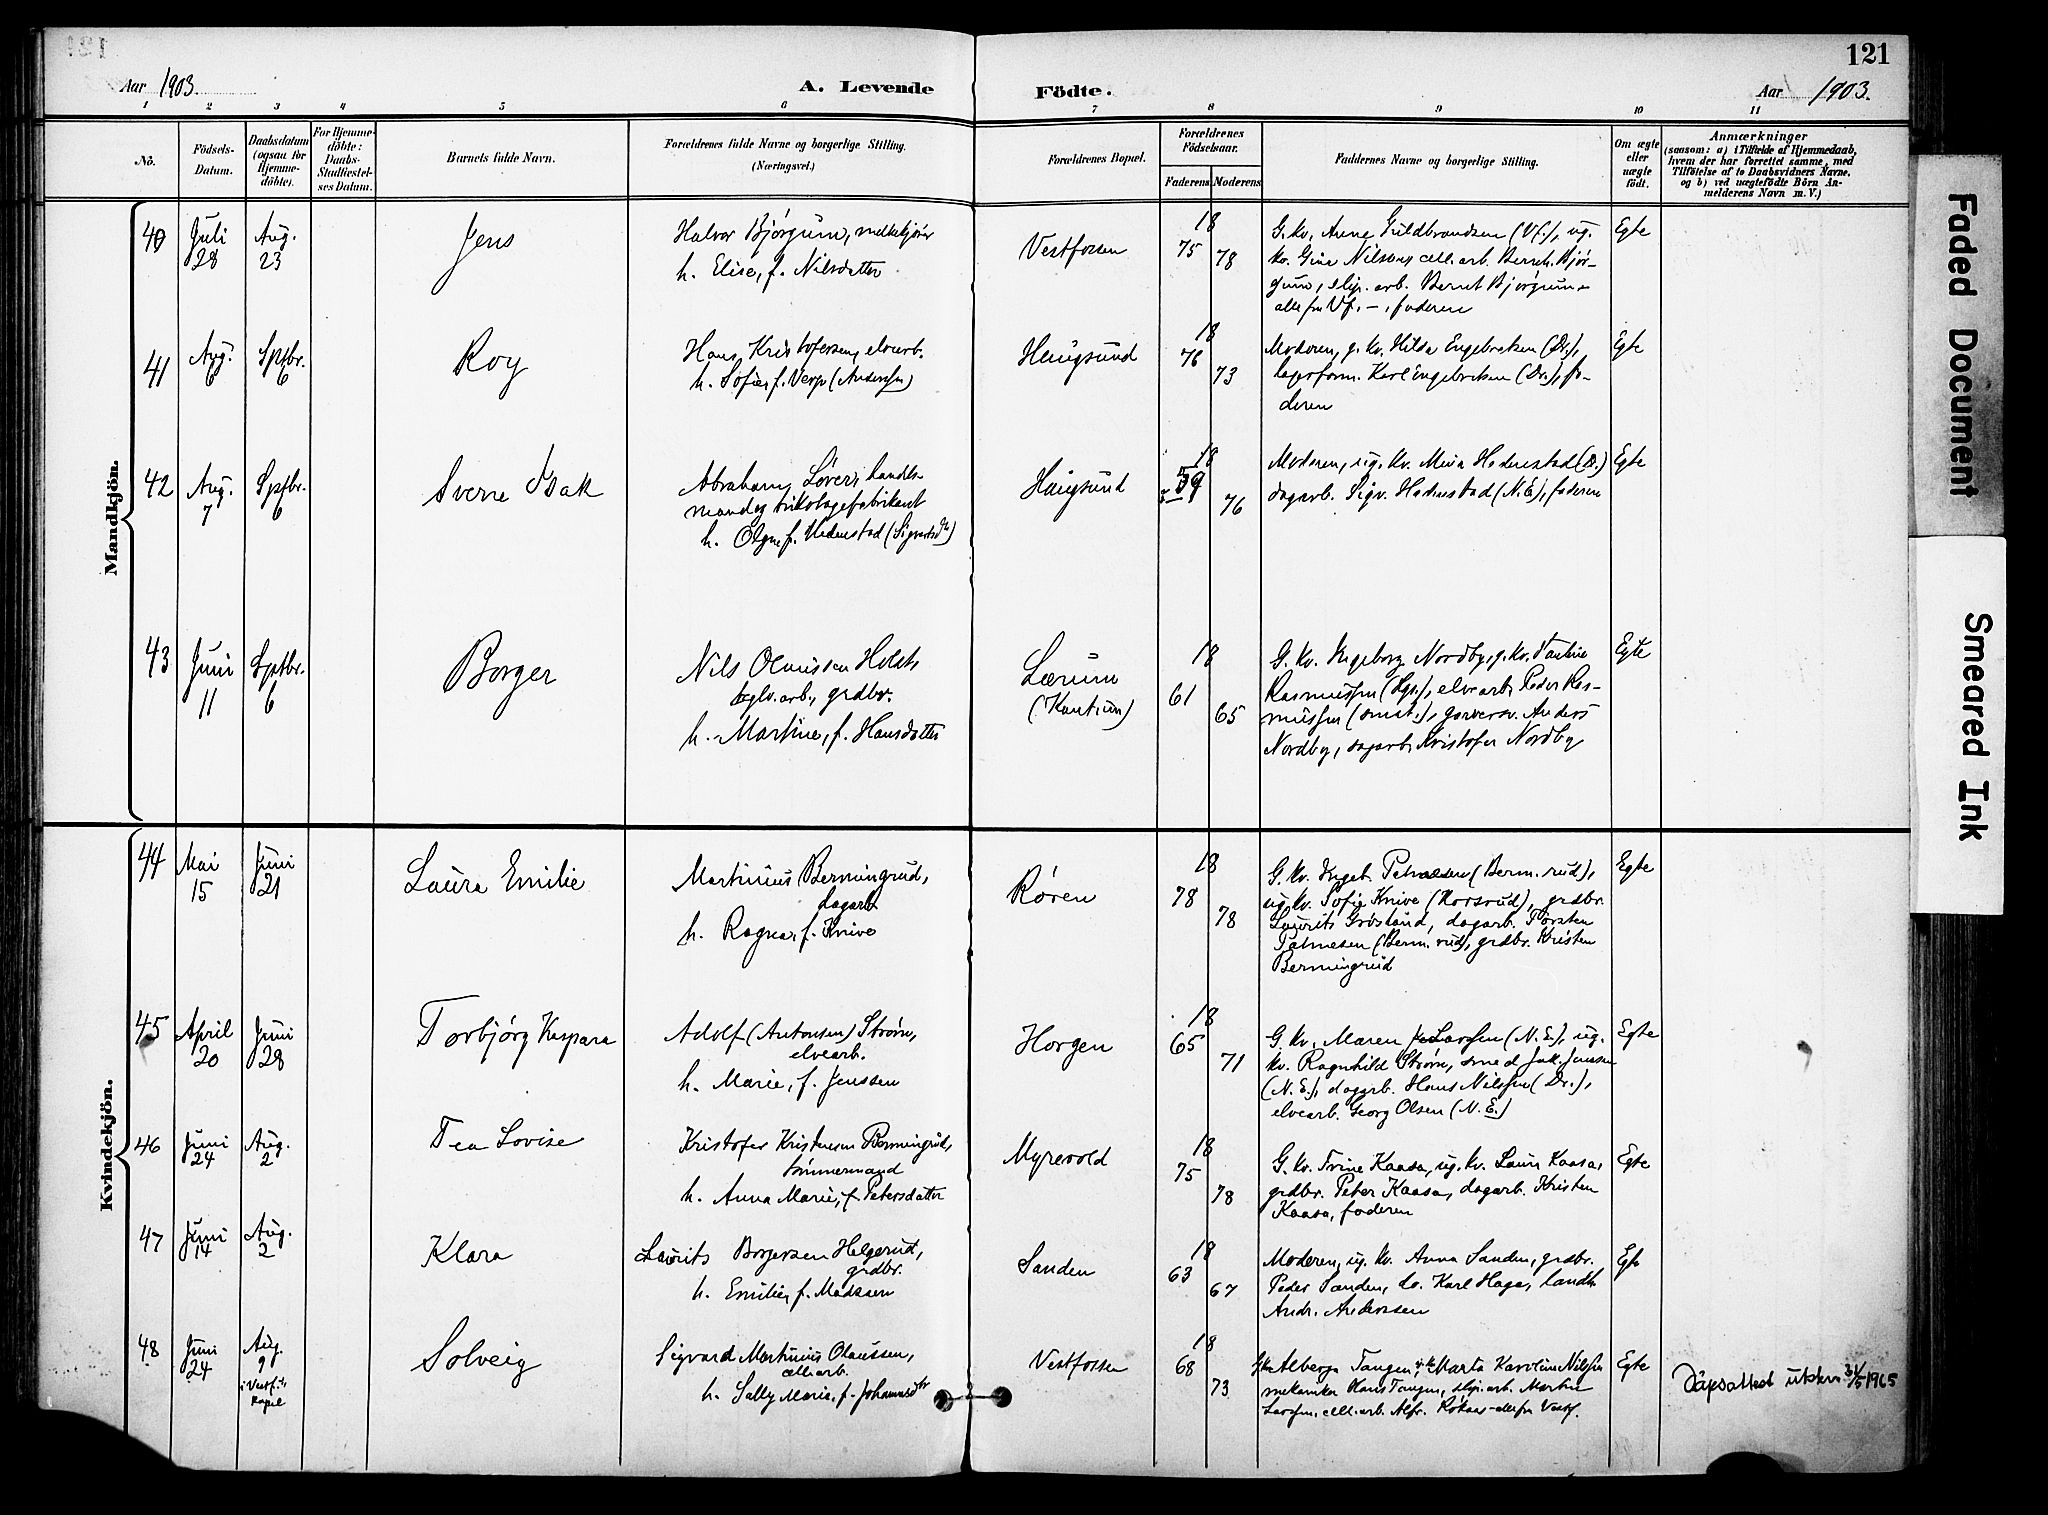 121
Aar 1903.
A. Levende Födte.
Aar 1903.
1 2 3 4 5 6 7 8 9 10 11
No.
Födsels-
Datum.
Daabsdatum
(ogsaa for
Hjemme-
döbte).
For Hjemme-
döbte:
Daabs-
Stadfæstel-
ses Datum.
Barnets fulde Navn.
Forældrenes fulde Navne og borgerlige Stilling.
(Næringsvei.)
Forældrenes Bopæl.
Forældrenes
Födselsaar.
Faderens Moderens
Faddernes Navne og borgerlige Stilling.
Om ægte
eller
uægte
födt.
Anmærkninger
(saasom: a) i Tilfælde af Hjemmedaab,
hvem der har forrettet samme, med
Tilföielse af to Daabsvidners Navne,
og b) ved uægtefödte Börn An-
melderens Navn m. V.)
Mandkjön.
40
Juli
28
Aug.
23
Jens
Halvor Bjørgum,
h. Elise, f. Nilsdatter
Vestfossen
18
75
78
G. kv. Anne Guldbrandsen (Vf.), ug.
kv. Gina Nilsens cell.arb. Bernh. Bjør-
gum, slip. arb. Bernt Bjørgum –
alle fra Vf. –, faderen
Egte
41
Aug.
6
Sptbr.
6
Roy
Hans Kristofersen, elvearb.
h. Sofie, f. Verp (Andersen)
Haugsund
18
76
73
Moderen, g. kv. Hilda Engebretsen (Dr.),
lagerform. Karl Engebretsen (Dr.), fa-
deren
Egte
42
Aug.
7
Sptbr.
6
Sverre Isak
Abraham Løver, handels-
mand og trikotagefabrikant
h. Olga, f. Hedenstad (Sigvartsd.)
Haugsund
18
59
76
Moderen, ug. kv. Mina Hedenstad (D.)
dagarb. Sigv. Hedenstad (N.E.), faderen
Egte
43
Juni
11
Sptbr.
6
Borger
Nils Olaussen Holst,
teglv.arb., grdbr.
h. Martine, f. Hansdatter
Lærum
18
61
65
G. kv. Ingeborg Nordby, g. kv. Pauline
Rasmussen, elvearb. Peder Ras-
mussen, garversv. Anders
Nordby, dagarb. Kristofer Nordby
Egte
Kvindekjön.
44
Mai
15
Juni
21
Laura Emilie
Martinius Bermingrud,
dagarb.
h. Ragna, f. Knive
Røren
18
78
78
G. kv. Ingeb. (Berm.rud),
ug. kv. Sofie Knive (Korsrud), grdbr.
Laurits Grøsland, dagarb. Torsten
(Berm.rud), grdbr. Kristen
Bermingrud
Egte
45
April
20
Juni
28
Torbjørg Kaspara
Adolf (Antonsen) Strøm,
elvearb.
h. Marie, f. Jenssen
Horgen
18
65
71
G. kv. Maren Larssen (N.E.), ug.
kv. Ragnhild Strøm, smed Jak. Jenssen
(N.E.), dagarb. Hans Nilssen (Dr.),
elvearb. Georg Olsen (N.E.)
Egte
46
Juni
24
Aug.
2
Tea Lovise
Kristofer Kristensen Bermingrud,
tømmermand
h. Anna Marie, f. Petersdatter
Myrevold
18
75
78
G. kv. Trine Kaasa, ug. kv. Laura Kaasa,
grdbr. Peter Kaasa, dagarb. Kristen
Kaasa, faderen
Egte
47
Juni
14
Aug.
2
Klara
Laurits Borgersen Helgerud,
grdbr.
h. Emilie, f. Madssen
Sanden
18
63
67
Moderen, ug. kv. Anna Sanden, grdbr.
Peder Sanden, do. Karl Haga, landh.
Andr. Anderssen
Egte
48
Juni
24
Aug.
9
i Vestf.s
kapel
Solveig
Sigvard Martinius Olaussen,
cell.arb.
h. Sally Marie, f. Johannesdtr
Vestfossen
18
68
73
Alberga Tangen, Marta Karoline Nilssen
mekaniker Hans Tangen, slip. arb. Martin
Larssen, cell.arb. Alfr. – alle fra Vestf.
Egte
Dåpsattest utskr. 31/5 1965
Faded Document
Smeared Ink